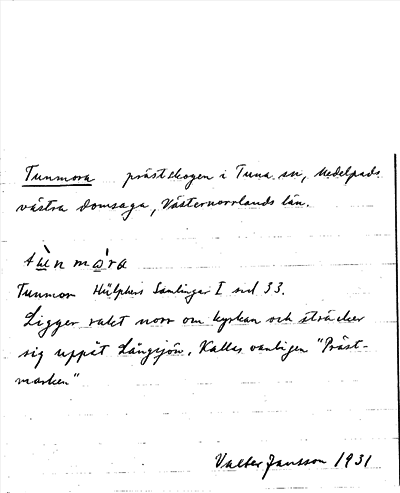 Tunmora prästskogen i Tuna sn, Medelpads
västra domsaga, Västernorrlands län.
tùnmóra
Tunmor Hülphers Samlingar I sid 33.
Ligger rakt norr om kyrkan och sträcker
sig uppåt Långsjön. Kallas vanligen "Präst-
marken"
Valter Jansson 1931